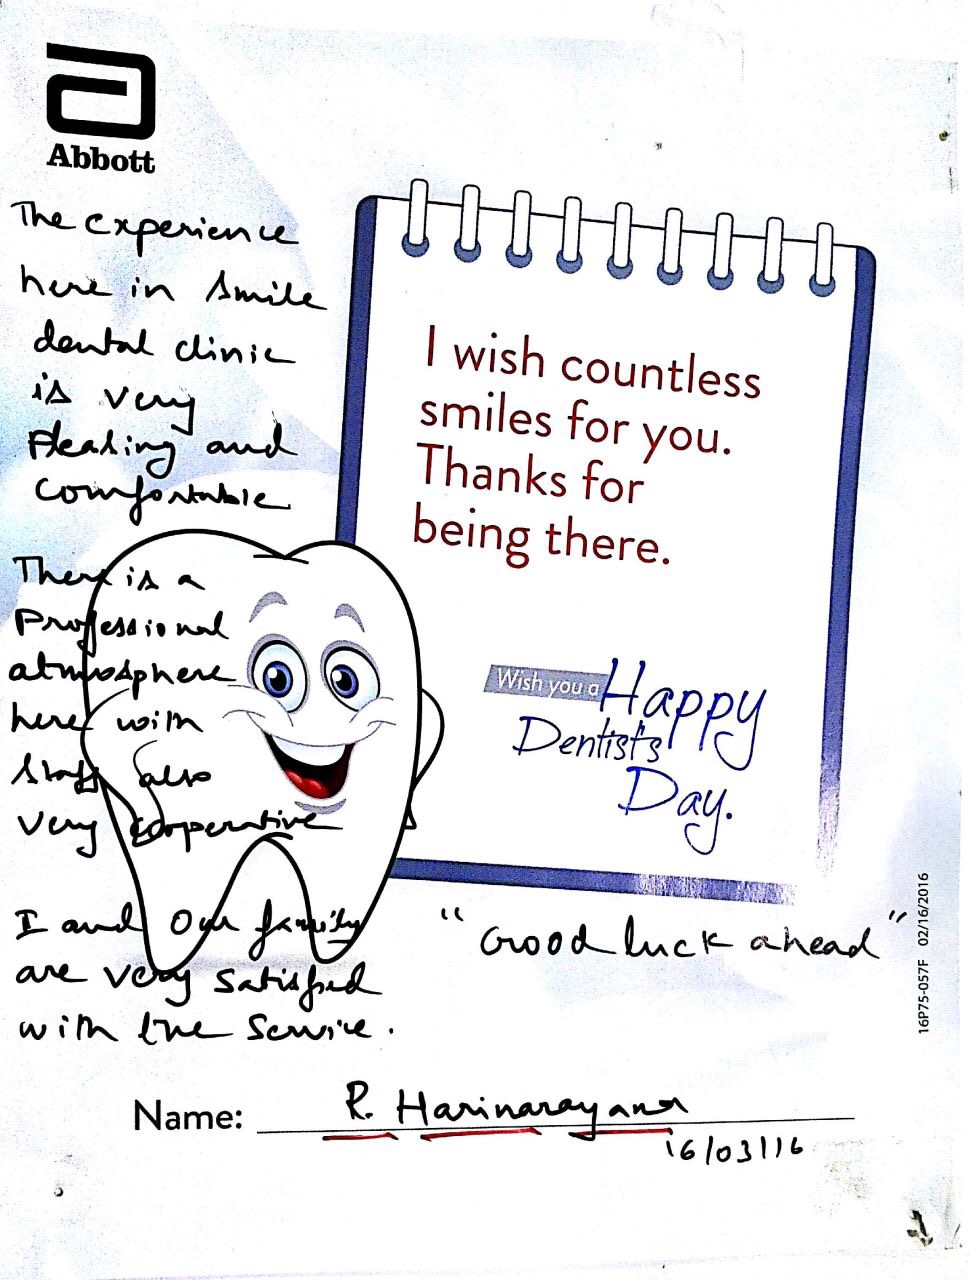 Abbott
The experience
here in smile
dental clinic
is very
pleasing and
comfortable
There is a
Professional
atmosphere
here with
staff also
very cooperative
I and our family
are very satisfied
with the service.
I wish countless
smiles for you.
Thanks for
being there.
Wish you a Happy
Dentist's
Day.
"Good luck ahead"
16P75-057F 02/16/2016
Name: R. Harinarayanan
16/03/16